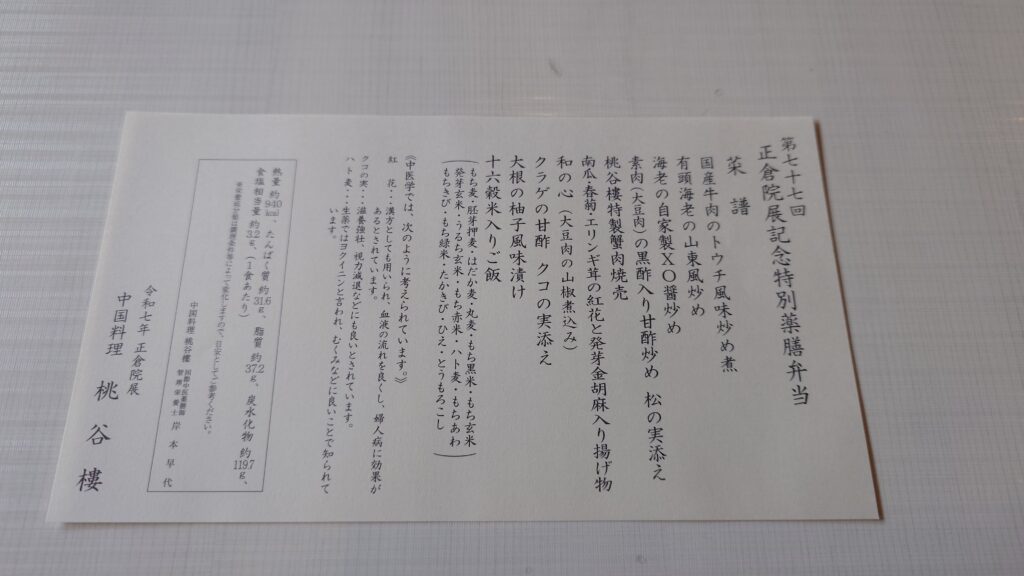 第七十七回
正倉院展記念特別薬膳弁当
菜 譜
国産牛肉のトウチ風味炒め煮
有頭海老の山東風炒め
海老の自家製XO醤炒め
素肉(大豆肉)の黒酢入り甘酢炒め 松の実添え
桃谷樓特製蟹肉焼売
南瓜・春菊・エリンギ茸の紅花と発芽金胡麻入り揚げ物
和の心(大豆肉の山椒煮込み)
クラゲの甘酢 クコの実添え
大根の柚子風味漬け
十六穀米入りご飯
(もち麦・胚芽押麦・はだか麦・丸麦・もち黒米・もち玄米
発芽玄米・うるち玄米・もち赤米・ハト麦・もちあわ
もちきび・もち緑米・たかきび・ひえ・とうもろこし)
《中医学では、次のように考えられています。》
紅 花・・漢方としても用いられ、血液の流れを良くし、婦人病に効果が
あるとされています。
クコの実・・滋養強壮、視力減退などにも良いとされています。
ハト麦・・・生薬ではヨクイニンと言われ、むくみなどに良いことで知られて
います。
熱量 約940kcal、たんぱく質 約31.6g、脂質 約37.2g、炭水化物 約119.7g、
食塩相当量 約3.2g、(1食あたり)
栄養量成分等は調理条件等によって変化しますので、目安としてご参考ください。
中国料理 桃谷樓 国際中医薬膳師 管理栄養士 岸本早代
令和七年 正倉院展
中国料理 桃谷樓